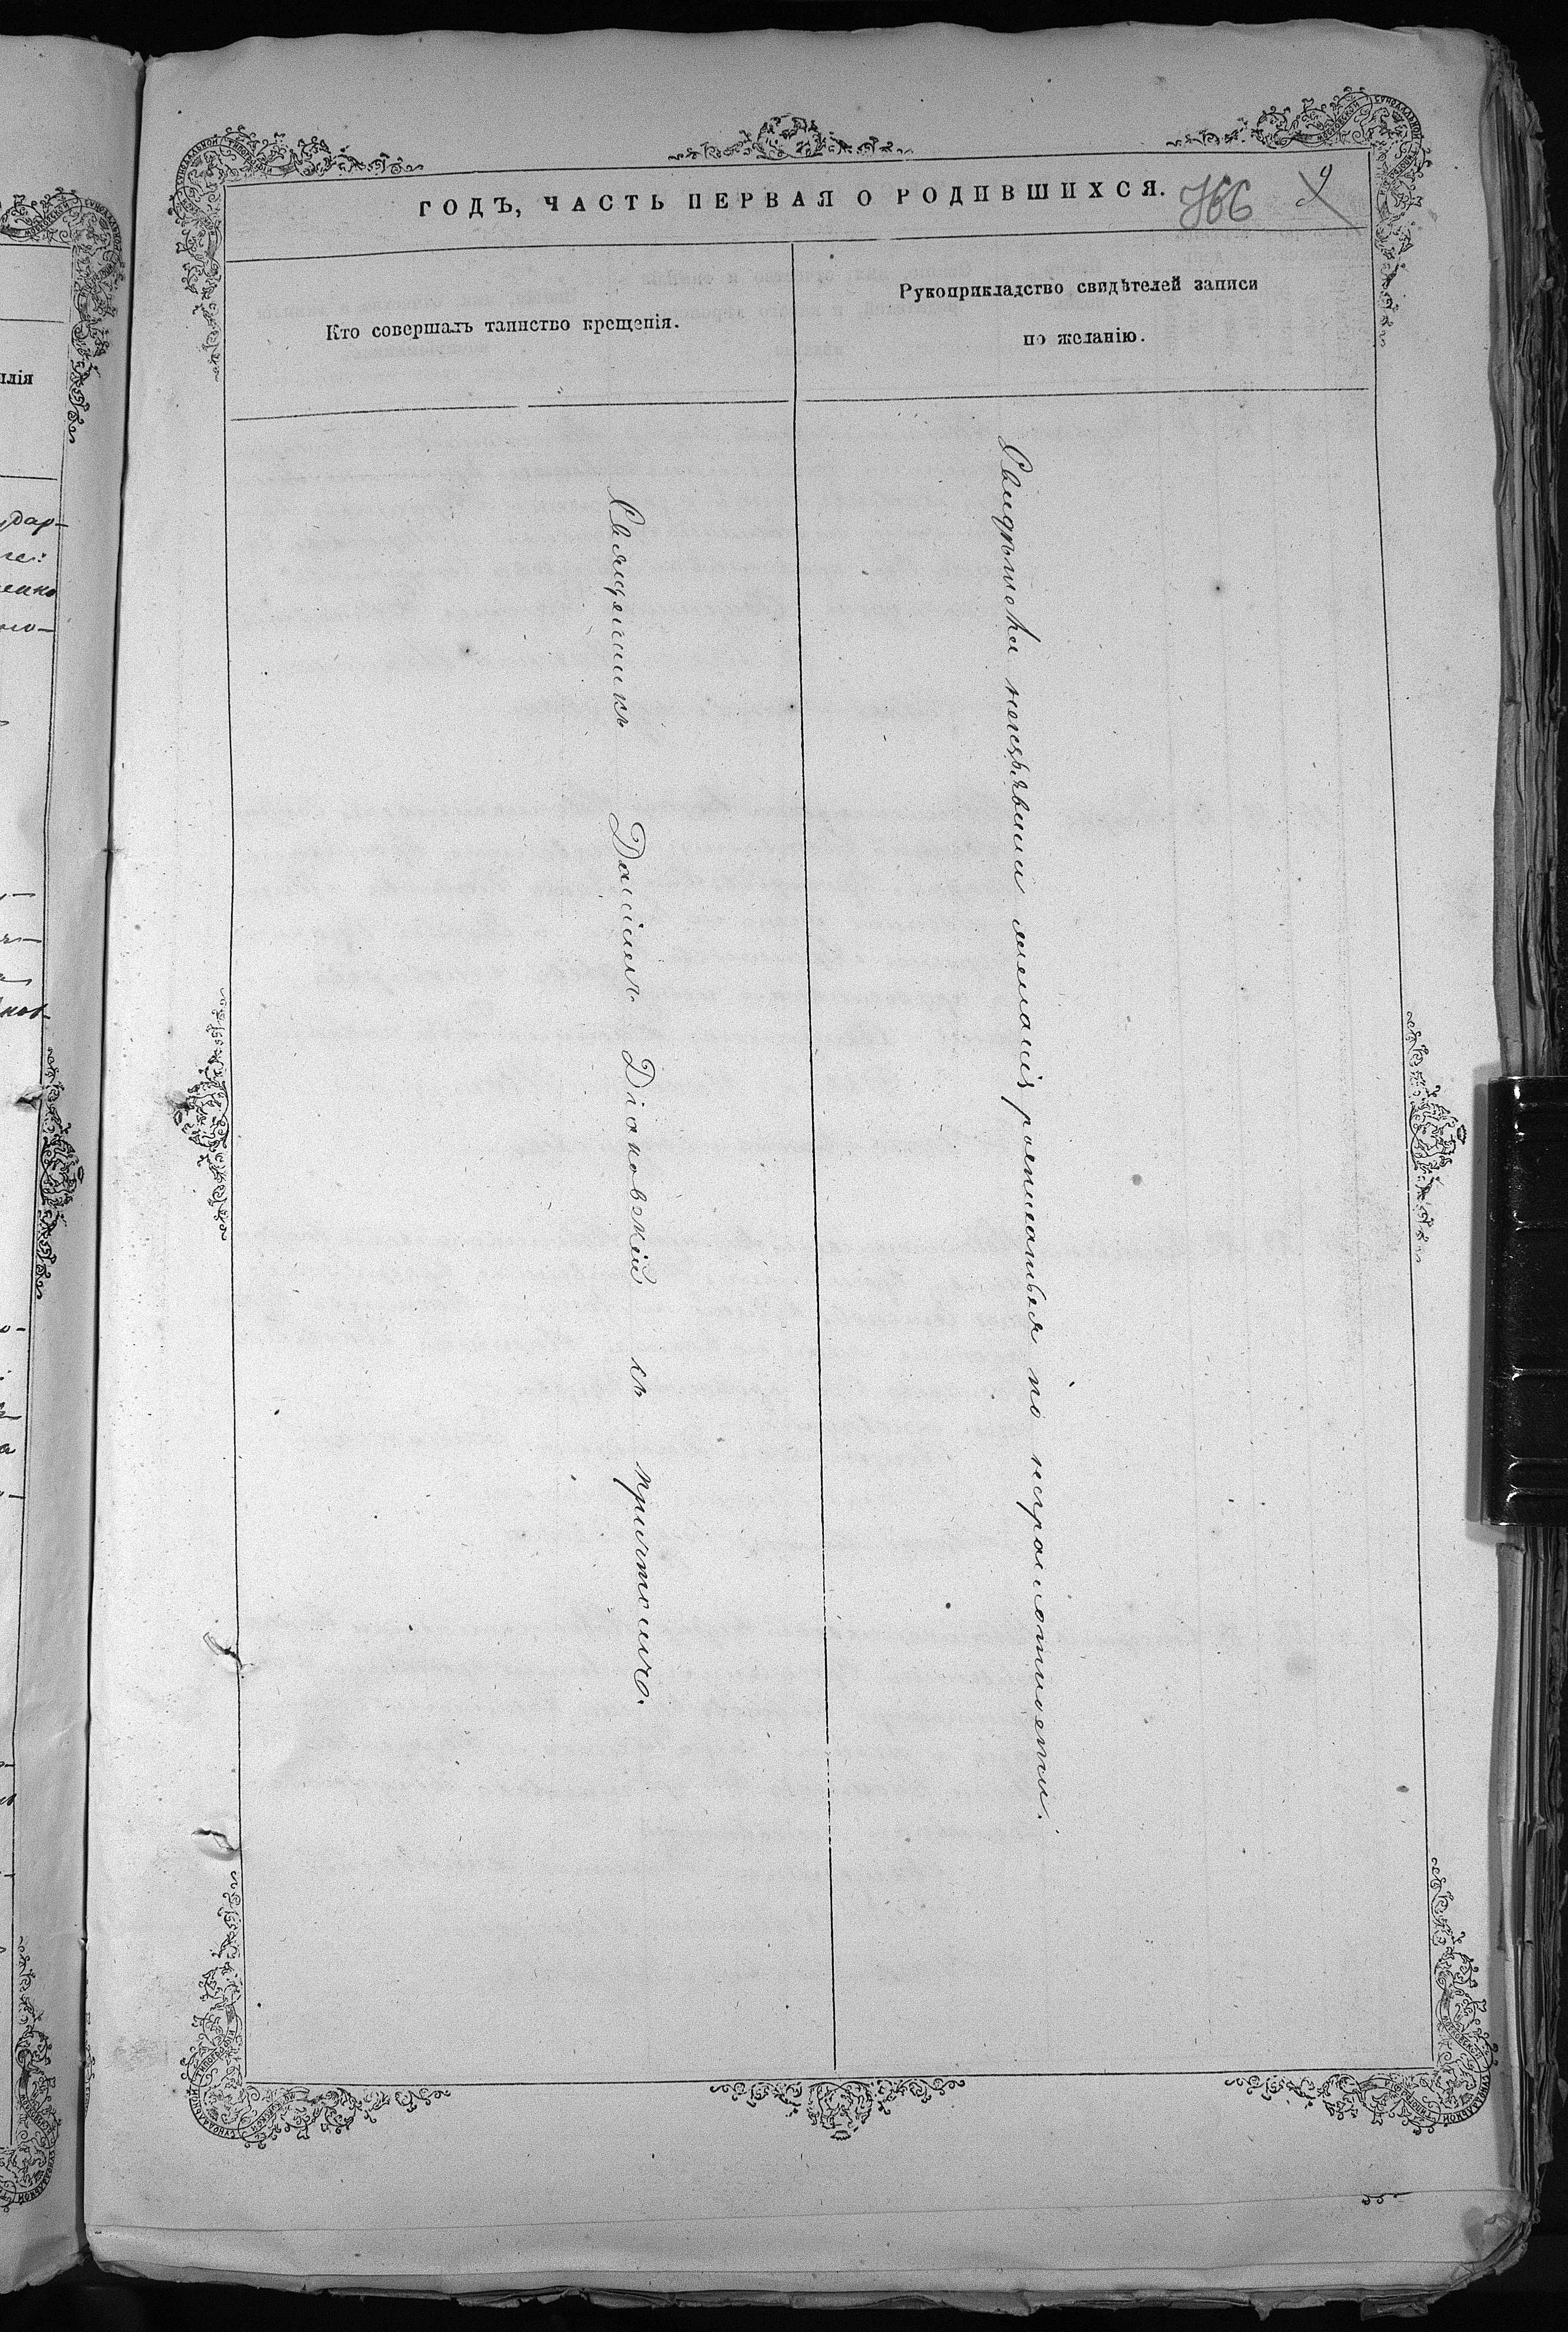 ГОДЪ, ЧАСТЬ ПЕРВАЯ О РОДИВШИХСЯ.
366
9
Кто совершалъ таинство крещенія.
Рукоприкладство свидѣтелей записи
по желанію.
Священникъ Даніилъ Діаковскій съ причтомъ.
Свидѣтели неизъявили желанія росписаться по неграмотности.
илія